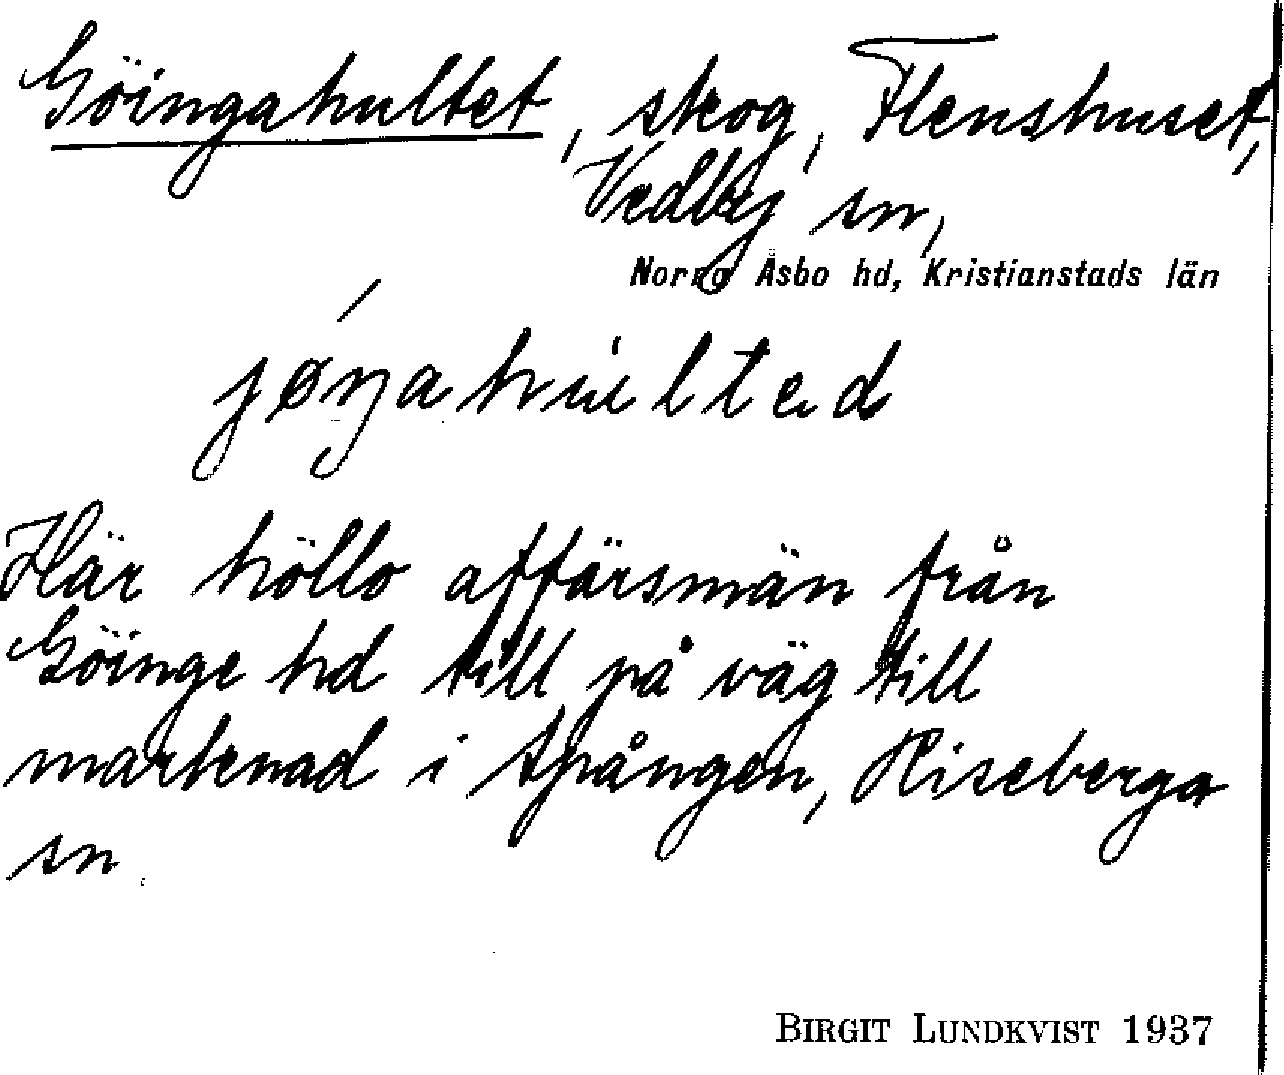 Göingahultet, skog, Flenshuset,
Vedby sn,
Norra Åsbo hd, Kristianstads län
jǿŋahu̇lted
Här höllo affärsmän från
Göinge hd till på väg till
marknad i Spången, Riseberga
sn.
BIRGIT LUNDKVIST 1937